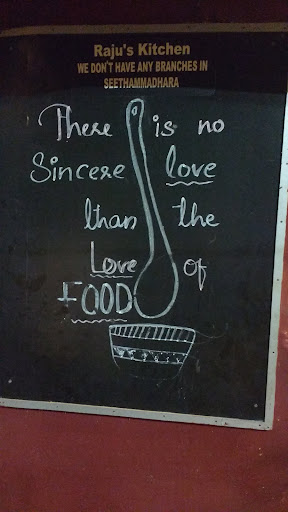 Raju's Kitchen
WE DON'T HAVE ANY BRANCHES IN
SEETHAMMADHARA
There is no
Sincere love
than the
Love of
FOOD